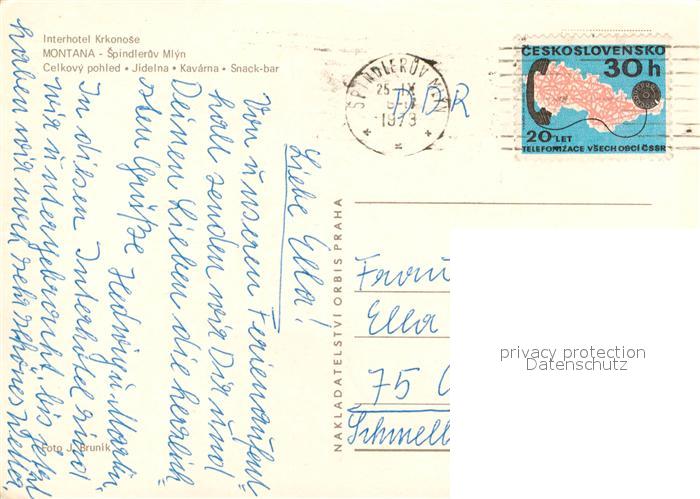 Interhotel Krkonoše
MONTANA - Špindlerův Mlýn
Celkový pohled • Jídelna • Kavárna • Snack-bar
ČESKOSLOVENSKO
30 h
20 LET
TELEFONIZACE VŠECH OBCÍ ČSSR
ŠPINDLERŮV MLÝN
25
1973
DDR
Liebe Ella!
Von unseren Ferienaufent-
halt senden wir Dir und
Deinen Lieben die herzlich-
sten Grüße Hedwig u. Martin.
In diesen Interhotel sind
wir untergebracht, bis jetzt
haben wir noch sehr schönes Wetter.
NAKLADATELSTVÍ ORBIS PRAHA
Frau
Ella
75
Schmell
Foto J. Bruník
privacy protection
Datenschutz